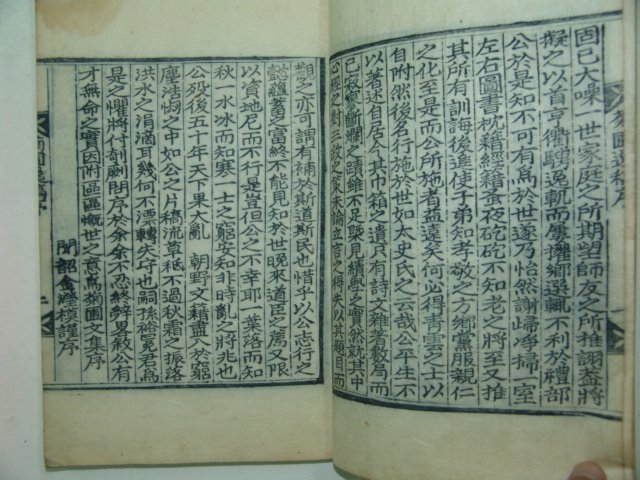 固已大噪一世家庭之所期望師友之所推詡盖將
擬之以首亨衢騁逸軌而屢擢鄕選輒不利於禮部
公於是知不可有爲於世遂乃怡然謝歸凈掃一室
左右圖書枕經藉籍蚤夜矻矻不知老之將至又推
其所有訓誨後進使子弟知孝敬之方鄕黨服親仁
之化至是而公所施者益遠矣何必得靑雲之士以
自附然後名行施於世如太史氏之云哉公平生不
以著述自居今其巾箱之遺只有詩文雜著數局而
已寂寥斷瀾之蹟雖不足覬見績學之實然就其中
心經之對 策朱倫立言之得失以其題目而
觀之亦可謂有補於斯道斯民也惜乎以公志行之
懿蘊蓄之富終不能見知於世晩來道臣之薦又限
以資地尼而不行是豈但公之不幸耶一葉落而知
秋一水冰而知寒一士之窮安知非時亂之將兆也
公歿後五十年天下果大亂 朝野文籍盡入於窮
塵浩悔之中如公之片稿流草秪不過秋霜之振落
洪水之涓滴耳幾何不漂轉失坪也嗣孫裕冕君爲
是之懼將付剞劂問序於余余不忍終辭畧敘公有
才無命之實因附區區慨世之意爲菊圃文集序
聞韶金 模謹序
菊圃逸稿序